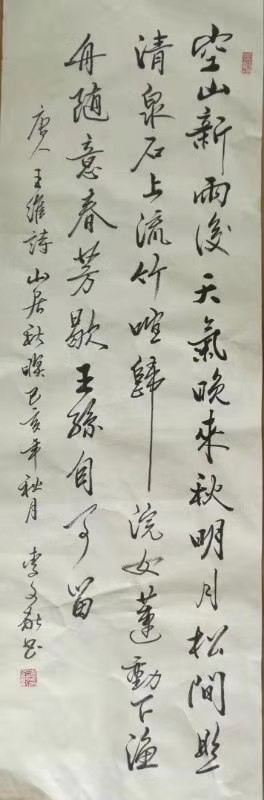 空山新雨後天氣晚來秋明月松間照
清泉石上流竹喧歸浣女蓮動下漁
舟隨意春芳歇王孫自可留
唐人王維詩山居秋暝己亥年秋月 李文